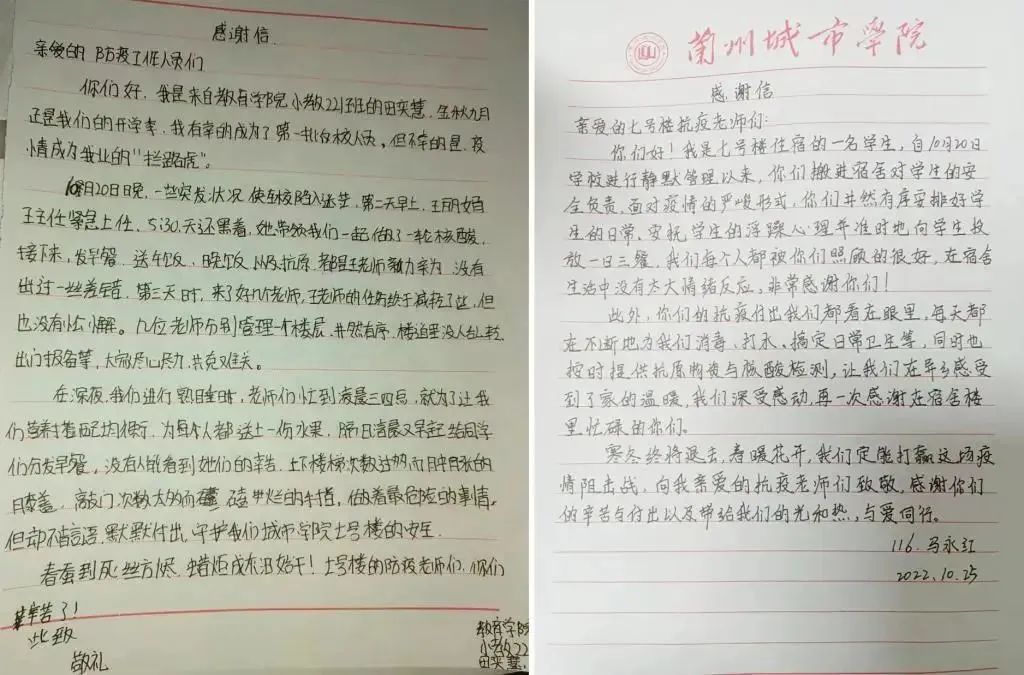 感谢信
亲爱的防疫工作人员们
你们好，我是来自教育学院小教221班的田奕慧，金秋九月
正是我们的开学季，我有幸的成为了第一批返校人员，但不幸的是，疫
情成为我业的"拦路虎"。
10月20日晚，一些突发状况使学校陷入迷茫，第二天早上，王丽娟
王主任紧急上任，5:30，天还黑着，她带领我们一起做了一轮核酸，
接下来，发早餐，送午饭，晚饭，以及抗原，都是王老师亲力亲为，没有
出过一丝差错，第三天时，来了好几位老师，王老师的任务终于减轻了些，但
也没有松懈。几位老师分别管理一个楼层，井然有序，楼道里没人乱转，
出门报备等，大家尽心尽力，共克难关。
在深夜，我们进行熟睡时，老师们忙到凌晨三四点，就为了让我
们营养搭配均衡，为每个人都送上一份水果，隔日清晨又早起给同学
们分发早餐，没有人能看到她们的辛苦，上下楼梯次数过多而肿胀的
膝盖，敲门次数太多而磕烂的手指，做着最危险的事情，
但却不言语，默默付出，守护我们城市学院七号楼的安全
春蚕到死丝方烬，蜡炬成灰泪始干！七号楼的防疫老师们，你们
辛苦了！
此致
敬礼
教育学院
小教22
田奕慧
兰州城市学院
感谢信
亲爱的七号楼抗疫老师们：
你们好！我是七号楼住宿的一名学生，自10月20日
学校进行静默管理以来，你们搬进宿舍对学生的安
全负责，面对疫情的严峻形式，你们井然有序安排好学
生的日常、安抚学生的浮躁心理并准时地向学生投
放一日三餐，我们每个人都被你们照顾的很好，在宿舍
生活中没有太大情绪反应，非常感谢你们！
此外，你们的抗疫付出我们都看在眼里，每天都
在不断地为我们消毒、打水、搞定日常卫生等，同时也
按时提供抗原物资与核酸检测，让我们在异乡感受
到了家的温暖，我们深受感动，再一次感谢在宿舍楼
里忙碌的你们。
寒冬终将退去，春暖花开，我们定能打赢这场疫
情阻击战，向我亲爱的抗疫老师们致敬，感谢你们
的辛苦与付出以及带给我们的光和热，与爱同行。
116.马永红
2022.10.25